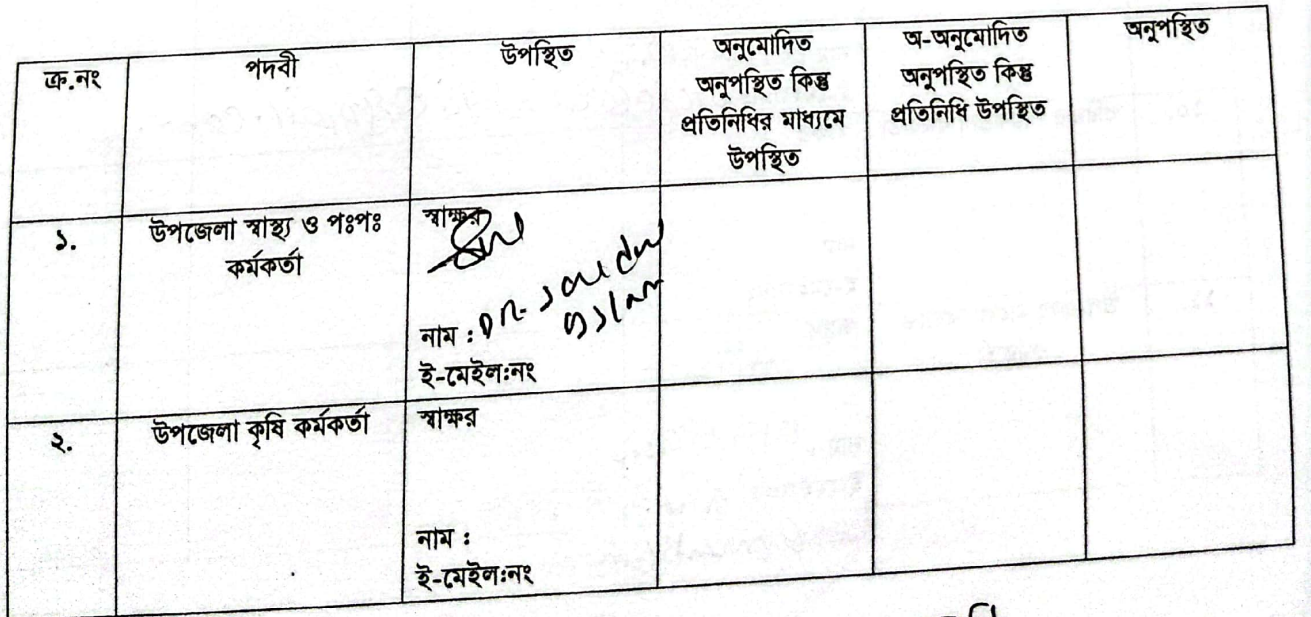 ক্র.নং পদবী উপস্থিত অনুমোদিত অনুপস্থিত কিন্তু প্রতিনিধির মাধ্যমে উপস্থিত অ-অনুমোদিত অনুপস্থিত কিন্তু প্রতিনিধি উপস্থিত অনুপস্থিত
১. উপজেলা স্বাস্থ্য ও পঃপঃ কর্মকর্তা
স্বাক্ষর
নাম : DR-
ই-মেইল:নং
২. উপজেলা কৃষি কর্মকর্তা
স্বাক্ষর
নাম :
ই-মেইল:নং